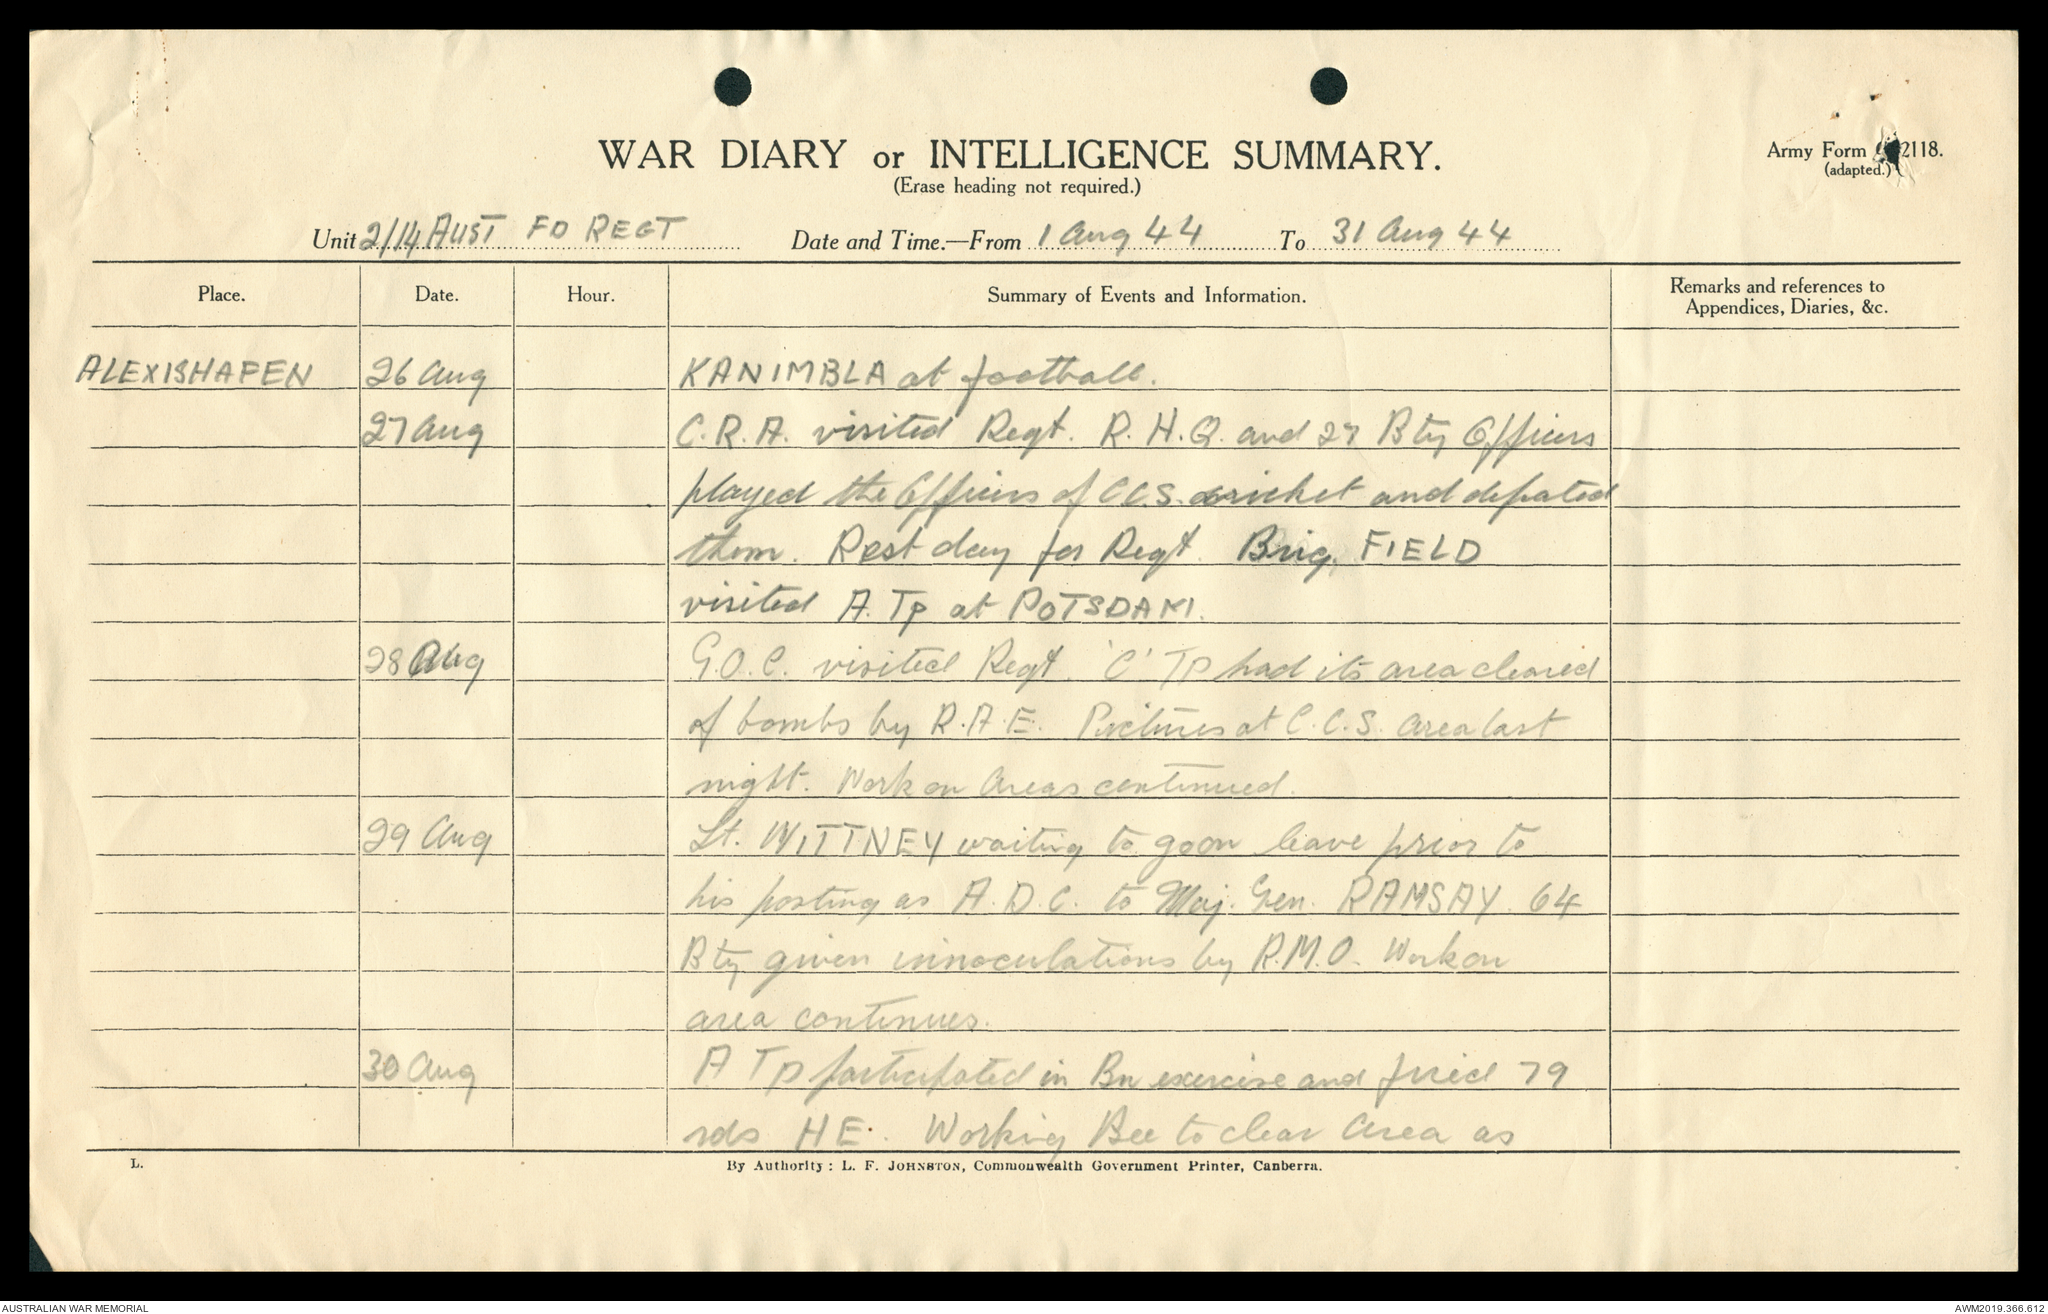 WAR DIARY or INTELLIGENCE SUMMARY.
(Erase heading not required.)
Army Form 2118.
(adapted.)
Unit 2/14 AUST FD REGT Date and Time.—From 1 Aug 44 To 31 Aug 44
Place. Date. Hour. Summary of Events and Information. Remarks and references to
Appendices, Diaries, &c.
ALEXISHAFEN 26 Aug KANIMBLA at football.
27 Aug C.R.A. visited Regt. R.H.Q. and 27 Bty Officers
played the Officers of CCS. cricket and defeated
them. Rest day for Regt. Brig. FIELD
visited A. Tp at POTSDAM.
28 Aug G.O.C. visited Regt. 'C' Tp had its area cleared
of bombs by R.A.E. Pictures at C.C.S. area last
night. Work on Areas continued.
29 Aug Lt. WITTNEY waiting to go on leave prior to
his posting as A.D.C. to Maj. Gen. RAMSAY. 64
Bty given innoculations by R.M.O. Work on
area continues.
30 Aug A Tp participated in Bn exercise and fired 79
rds HE. Working Bee to clear Area as
L.
By Authority: L. F. JOHNSTON, Commonwealth Government Printer, Canberra.
AUSTRALIAN WAR MEMORIAL AWM2019.366.612